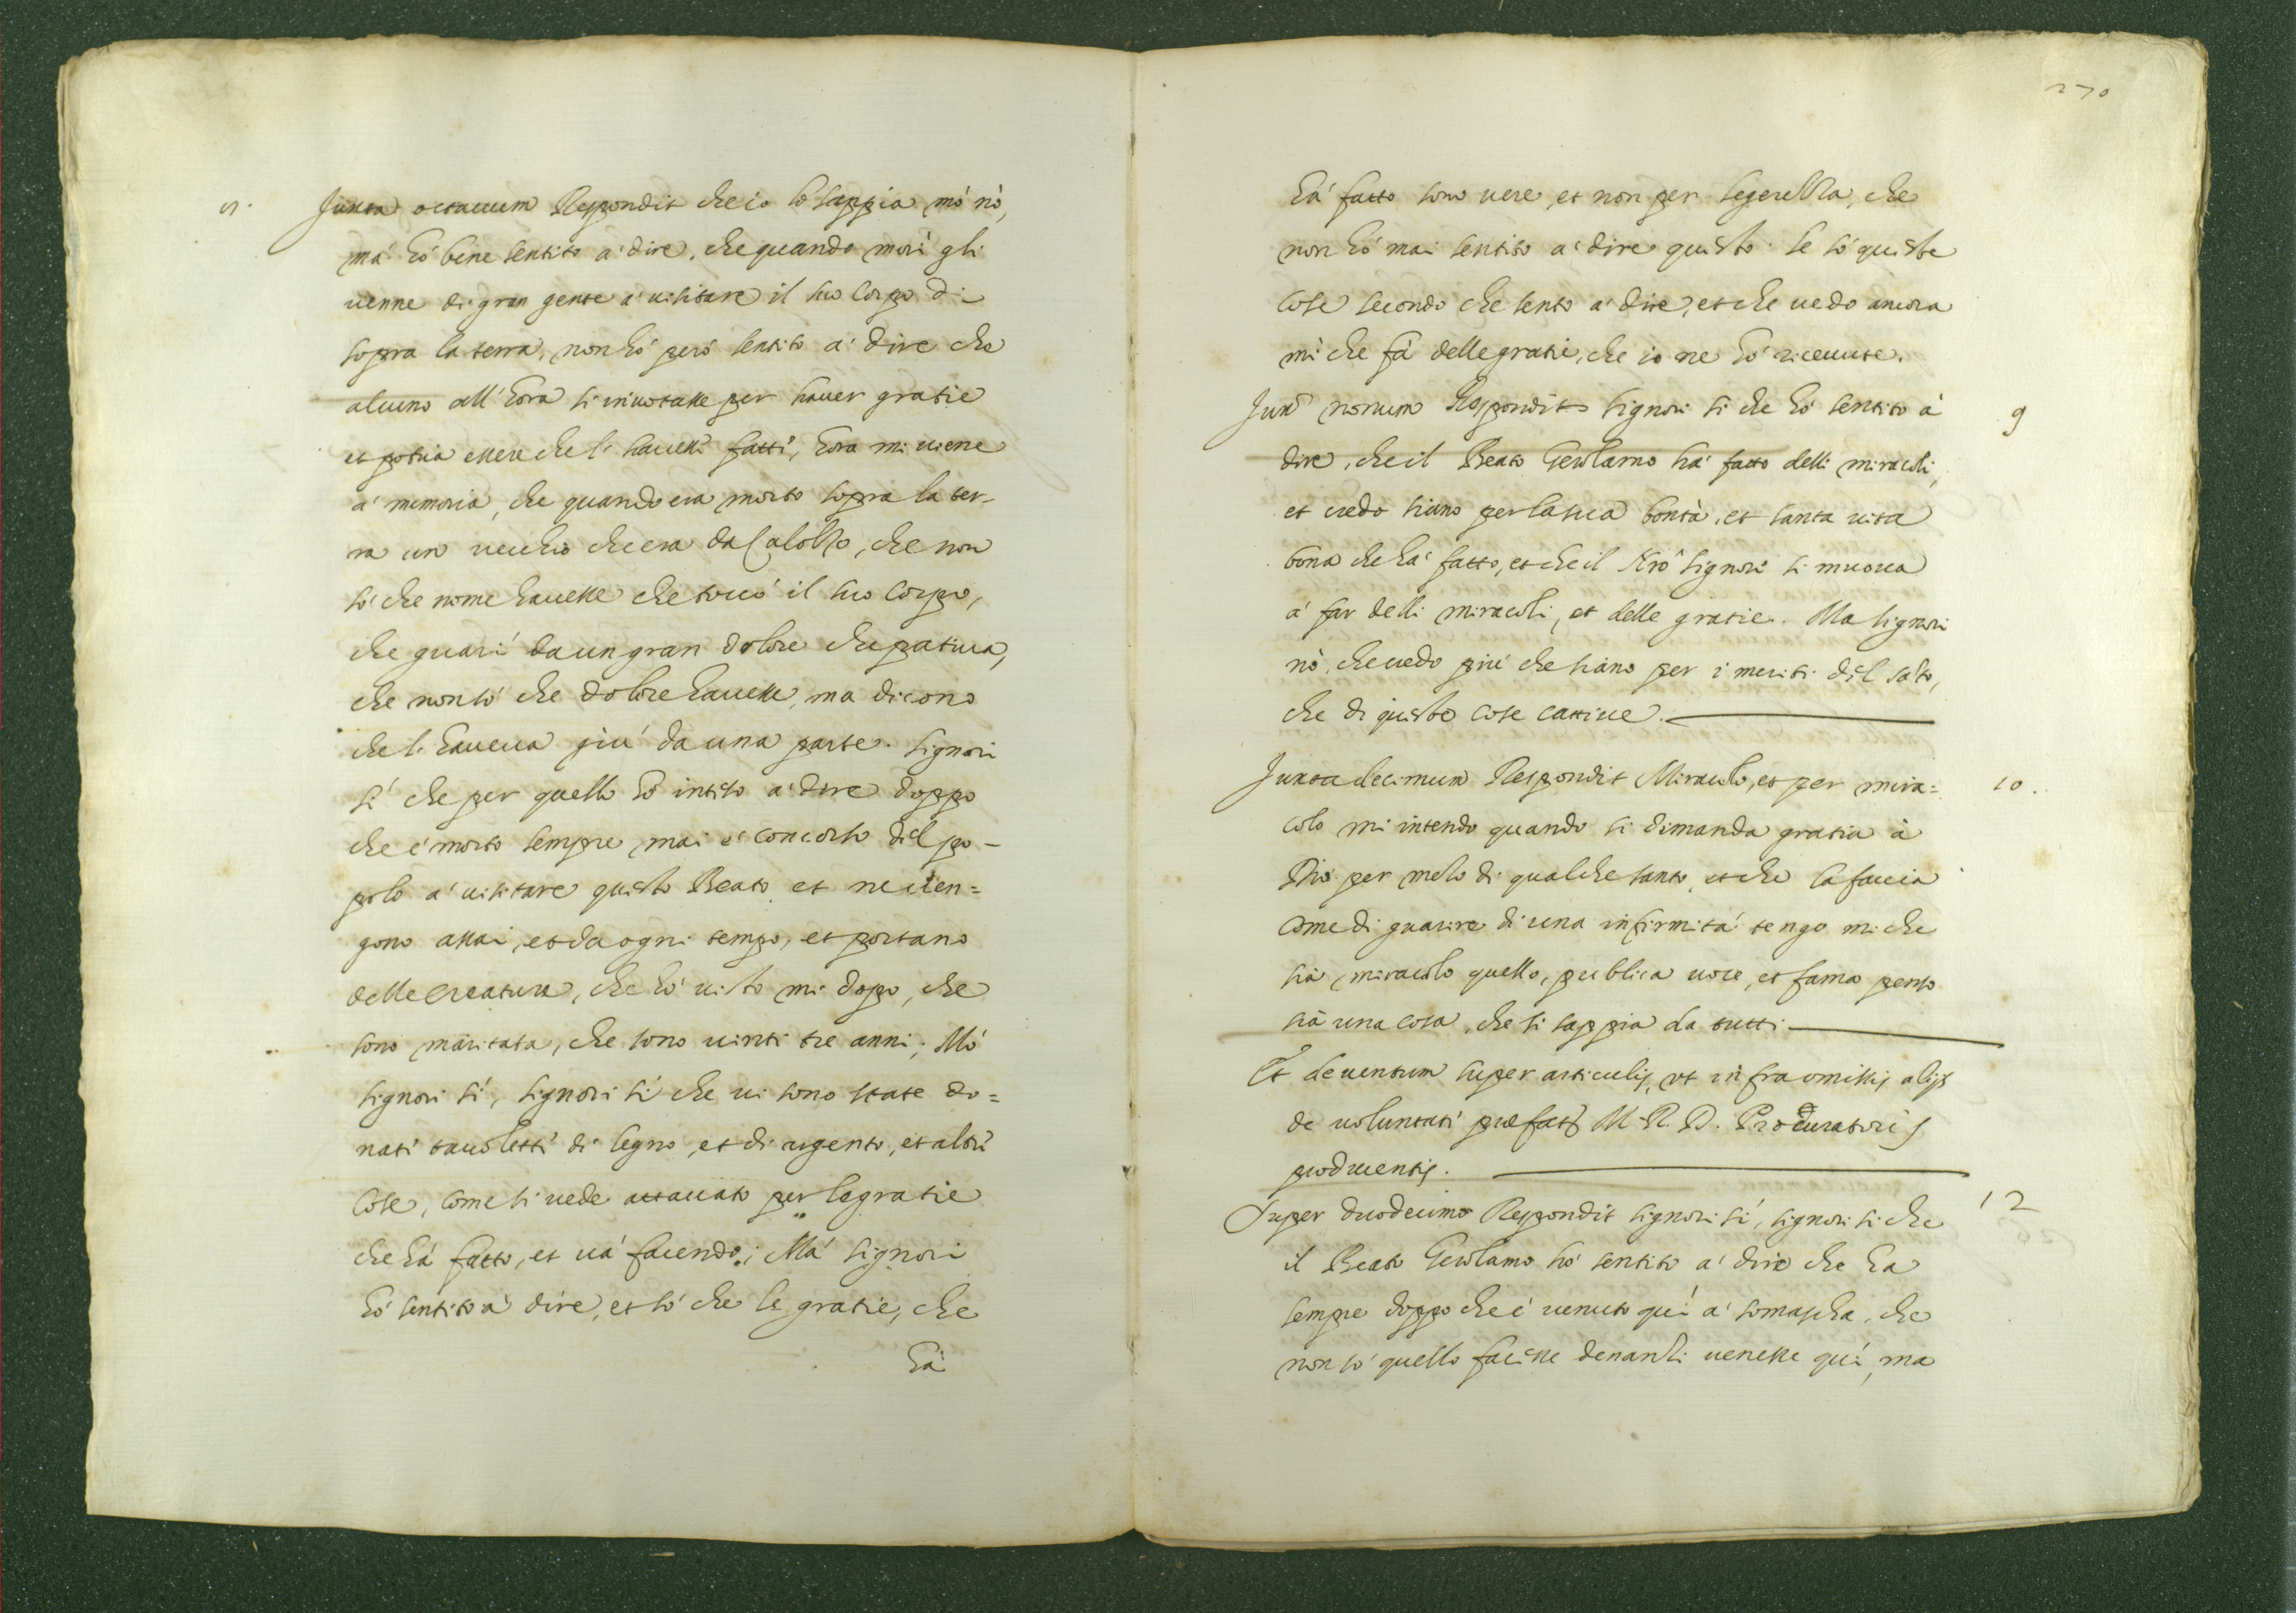 8.
Juxta octauum Respondit che io lo sappia mò nò,
mà hò bene sentito a' dire, che quando morì gli
uenne di gran gente a' uisitare il suo Corpo di
sopra la terra, non hò però sentito a' dire che
alcuno all'hora si inuotasse per hauer gratie
et potria essere che li hauessi fatti, hora mi uiene
a' memoria, che quando era morto sopra la ter-
ra un uecchio che era da Calolzo, che non
sò che nome hauesse che toccò il suo Corpo,
che guarì da un gran dolore che patiua,
che non sò che dolore hauesse, ma dicono
che l'haueua giù da una parte. Signori
sì che per quello hò inteso a' dire doppo
che è morto sempre mai è concorso del po-
polo a' uisitare questo Beato et ne uen=
gono assai, et da ogni tempo, et portano
delle creature, che hò uisto mi dopo, che
sono maritata, che sono uinti tre anni; Mò
signori sì, signori sì che ui sono state do=
nati tauoletti di legno, et di argento, et altri
cose, come si uede attaccato per le gratie
che hà fatto, et uà facendo; Mà signori
hò sentito a' dire, et sò che le gratie, che
hà
270
hà fatto sono uere, et non per legerezza, che
non hò mai sentito a' dire questo. Le sò queste
cose secondo che sento a' dire, et che uedo ancora
mì che fà delle gratie, che io ne hò riceuute.
Juxª nonum Respondit signori si che hò sentito à
9
dire, che il Beato Gerolamo hà fatto delli miracoli,
et credo siano per la sua bontà, et santa uita
bona che hà fatto, et che il Nrô Signori si muoua
a' far delli miracoli, et delle gratie. Ma signori
nò, che credo più che siano per i meriti del Sato,
che di queste cose cattiue.
Juxta decimum Respondit Miracolo, et per mira=
10.
colo mi intendo quando si dimanda gratia à
Dio per mezo di qualche santo, et che la faccia
come di guarire di una infirmità tengo mi che
sià miracolo quello, publica uoce, et fama penso
sià una cosa, che si sappia da tutti
Et deuentum super articulis, ut infra omissis alijs
de uoluntati prefati M. R. D. Procuratoris
producentis.
Super duodecimo Respondit signori sì, signori si che
12
il Beato Gerolamo hò sentito a' dire che ha
sempre doppo che è uenuto quì a' somascha, che
non sò quello facesse denanzi uenesse quì, ma